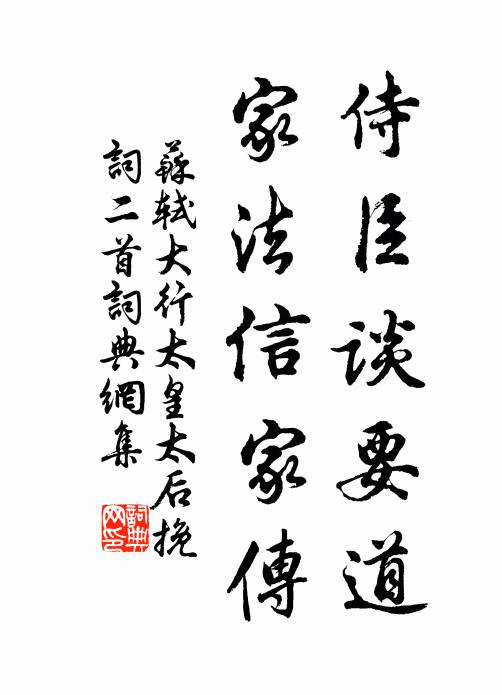 侍臣談要道
家法信家傳
蘇軾大行太皇太后挽
詞二首詞典網集
詞典網印